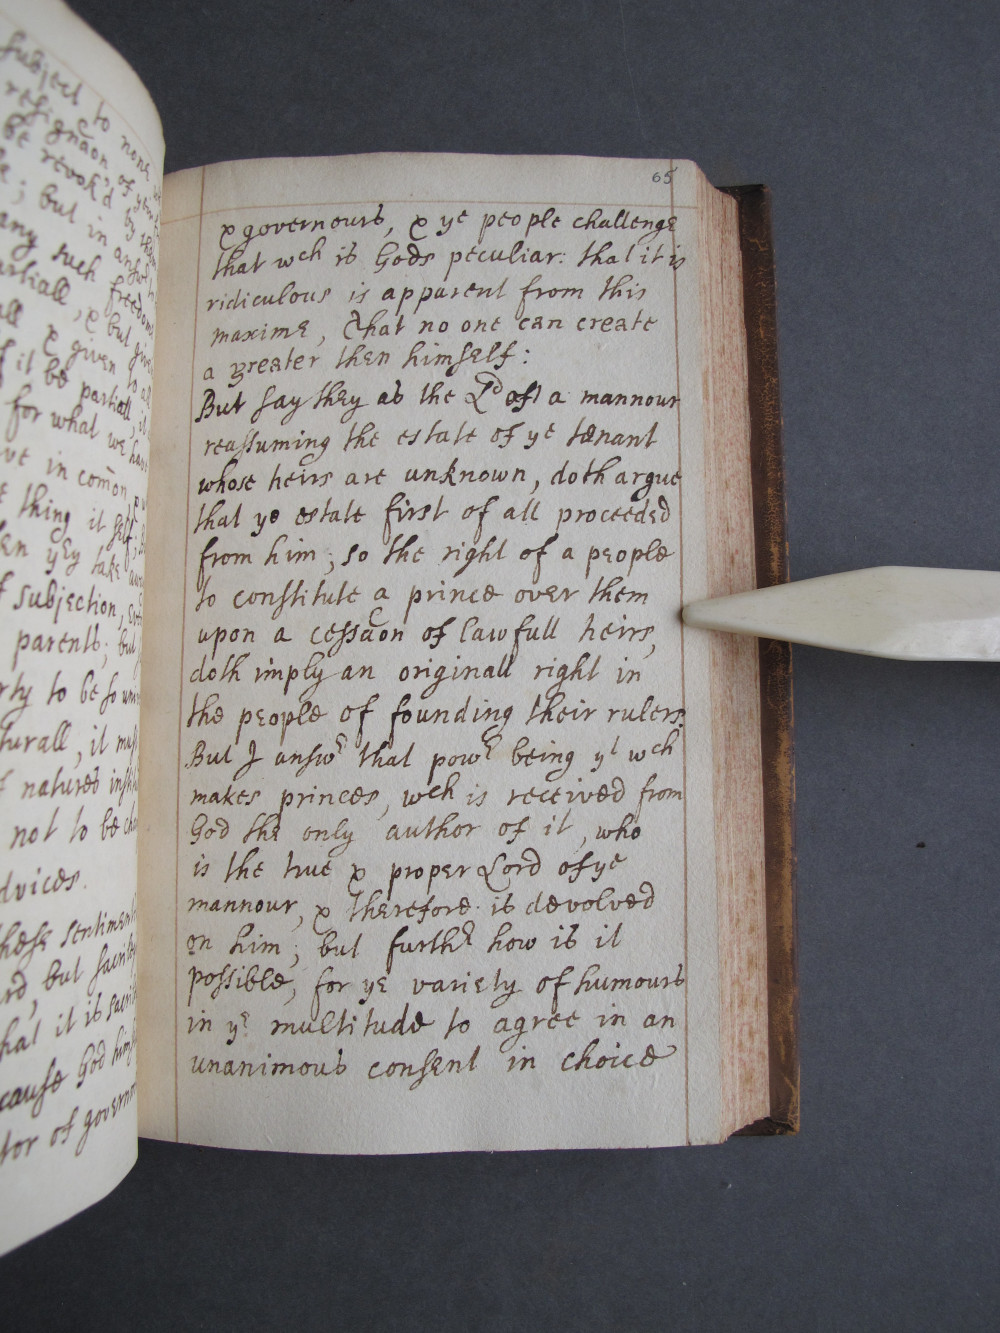 subject to none
resignãon of
be revok'd by
; but in answ
any such freedome
partiall, & but given
all & given to all
if it be partiall, it
for what we have
ve in com̃on
thing it self,
en yey take
f subjection,
parents; but
rty to be so
turall, it must
f natures
not to be
dvices.
these sentiments
rd, but
hat it is
cause God himself
tor of govern
65
& governours, & ye people challenge
that wch is Gods peculiar: that it is
ridiculous is apparent from this
maxime, that no one can create
a greater then himself:
But say they as the Ld of a mannour
reassuming the estate of ye tenant
whose heirs are unknown, doth argue
that ye estate first of all proceeded
from him; so the right of a people
to constitute a prince over them
upon a cessãon of lawfull heirs,
doth imply an originall right in
the people of founding their rulers.
But I answr that powr being yt wch
makes princes, wch is received from
God the only author of it, who
is the true & proper Lord of ye
mannour, & therefore is devolved
on him; but furthr how is it
possible, for ye variety of humours
in ye multitude to agree in an
unanimous consent in choice